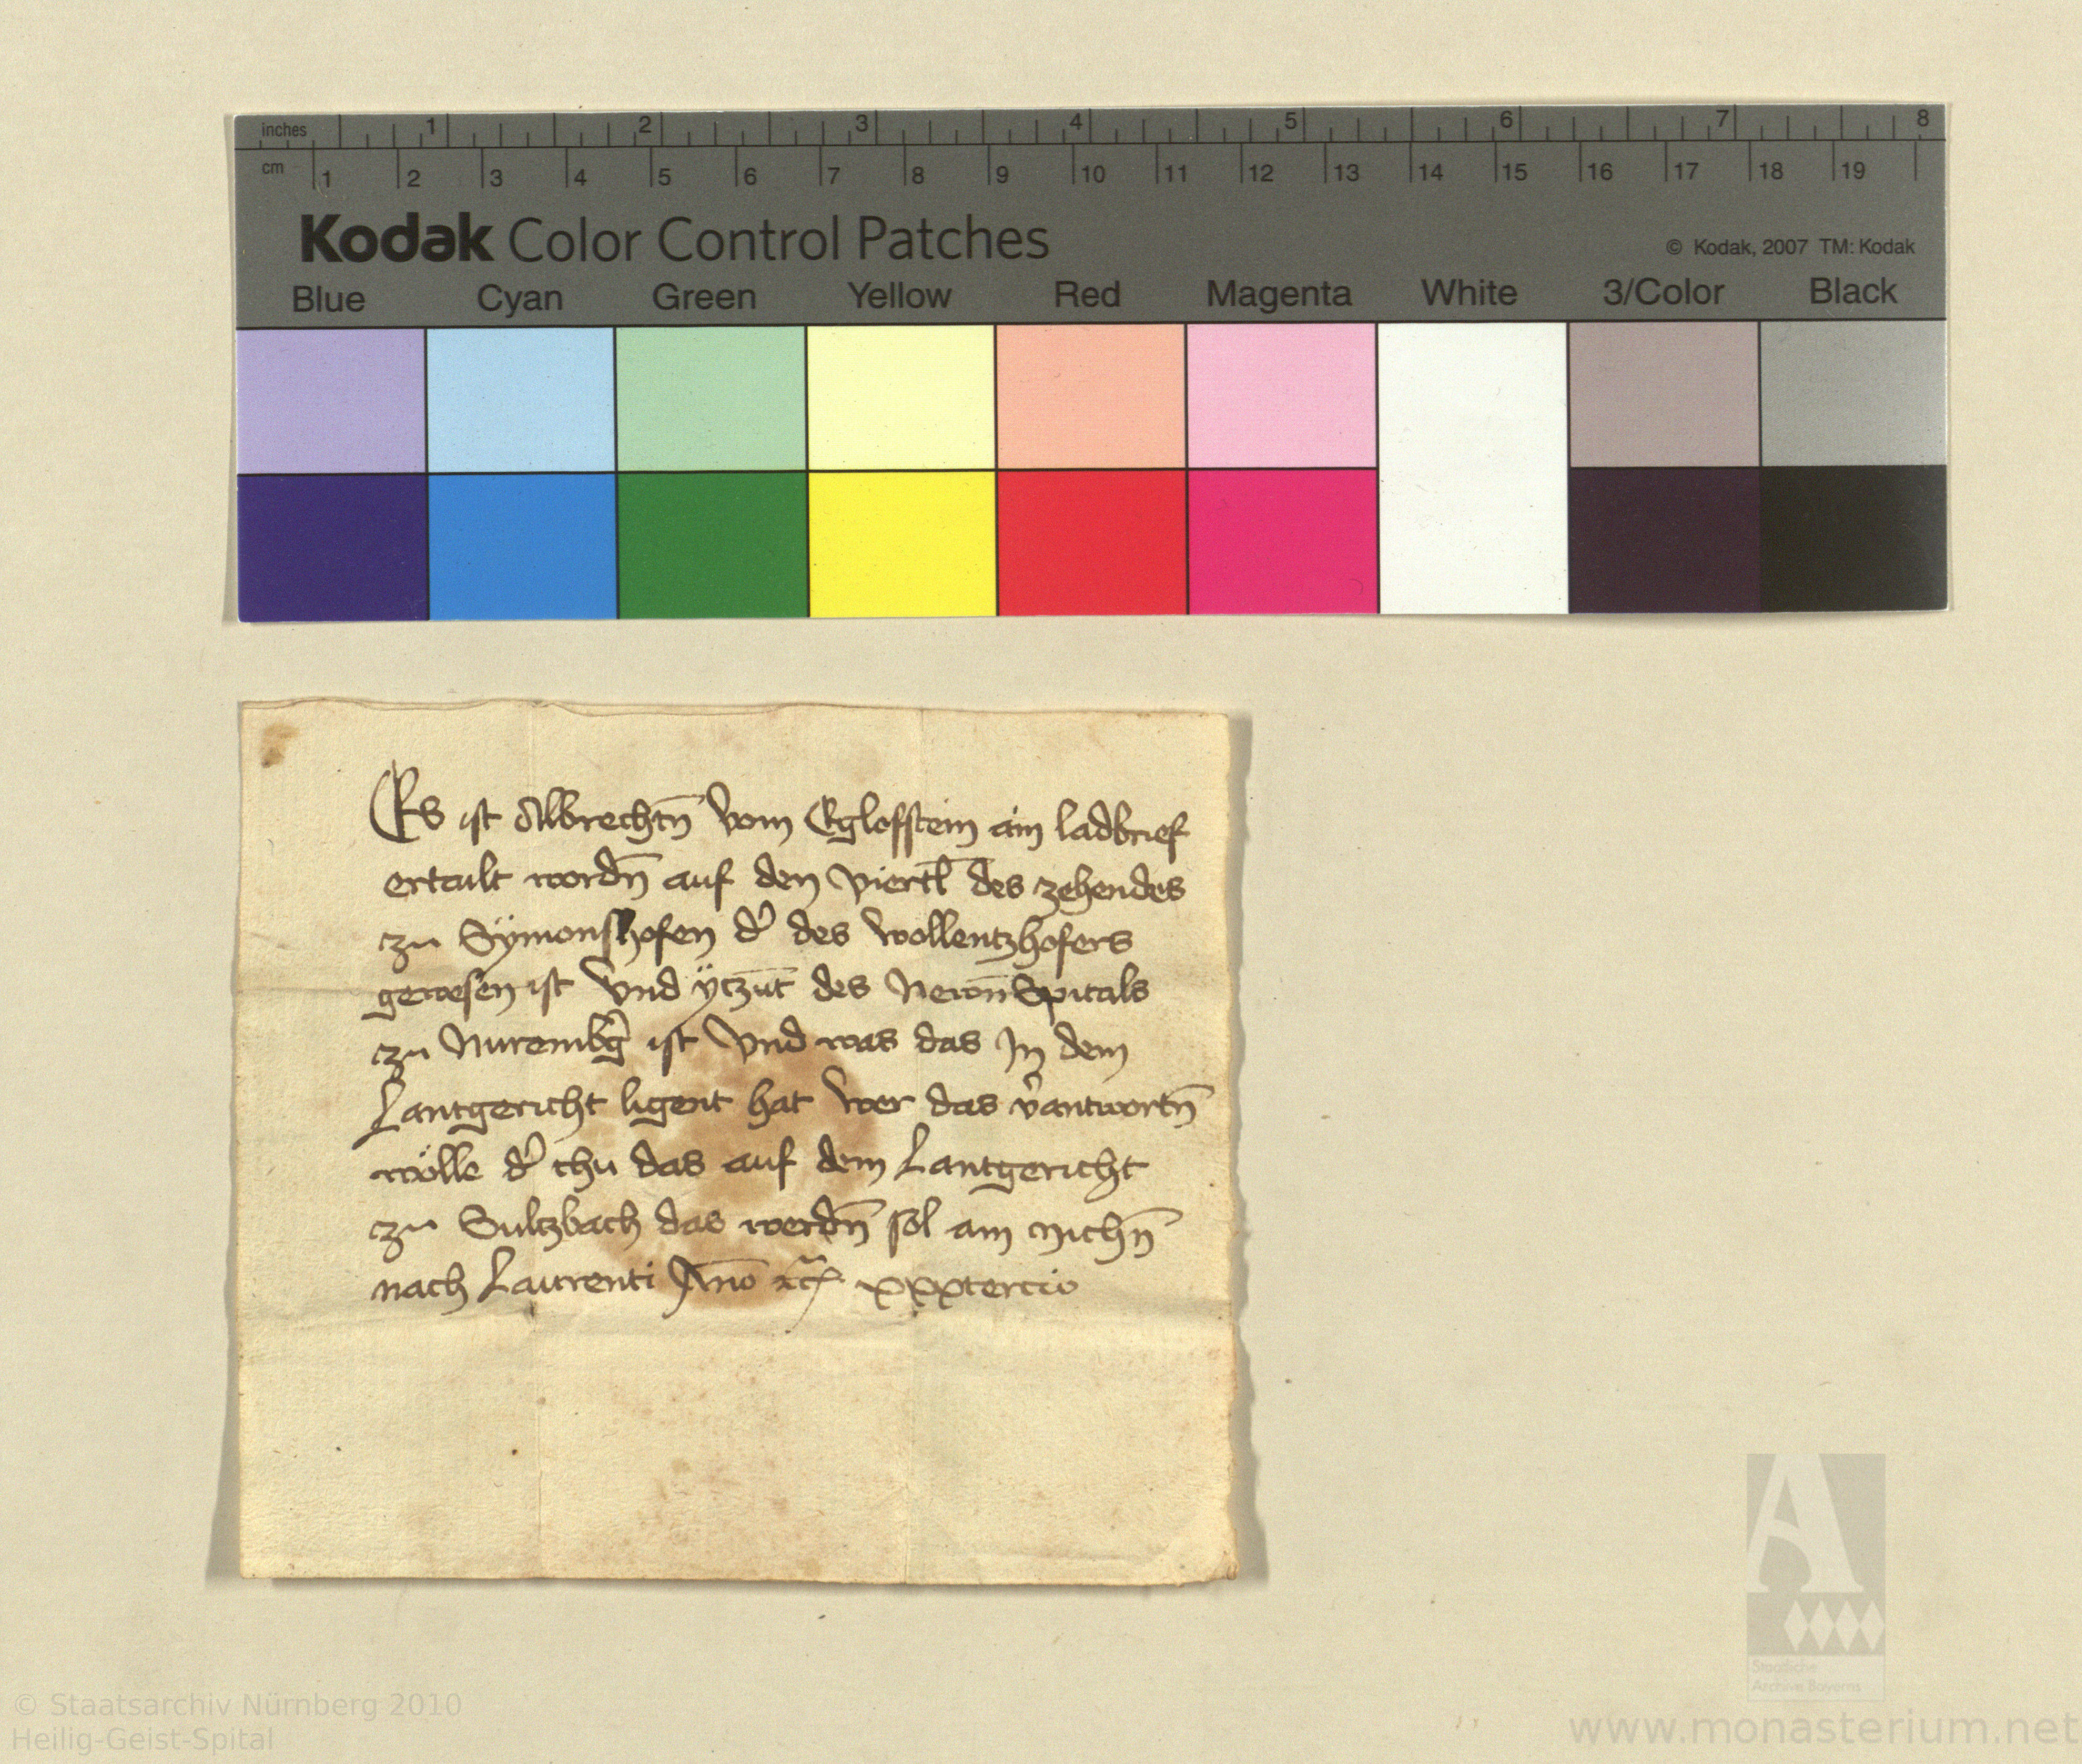 inches 1 2 3 4 5 6 7 8
cm 1 2 3 4 5 6 7 8 9 10 11 12 13 14 15 16 17 18 19
Kodak Color Control Patches
© Kodak, 2007 TM: Kodak
Blue Cyan Green Yellow Red Magenta White 3/Color Black
Es ist Albrechtn̄ vom Eglofstein ain ladbrief
ertailt wordn̄ auf den viertl̄ des zehendes
zu Sÿmonshofen d' des wollentzhofers
gewesen ist vnd ÿtzūt des Newn̄ Spitals
zu Nurembg' ist vnd was das In dem
Lantgericht ligent hat wer das v'antwortn̄
wölle d' thu das auf dem Lantgericht
zu Sultzbach das werdn̄ sol am michn̄
nach Laurenti An̄o xxxtercio
Staatliche
Archive Bayerns
© Staatsarchiv Nürnberg 2010
Heilig-Geist-Spital
www.monasterium.net